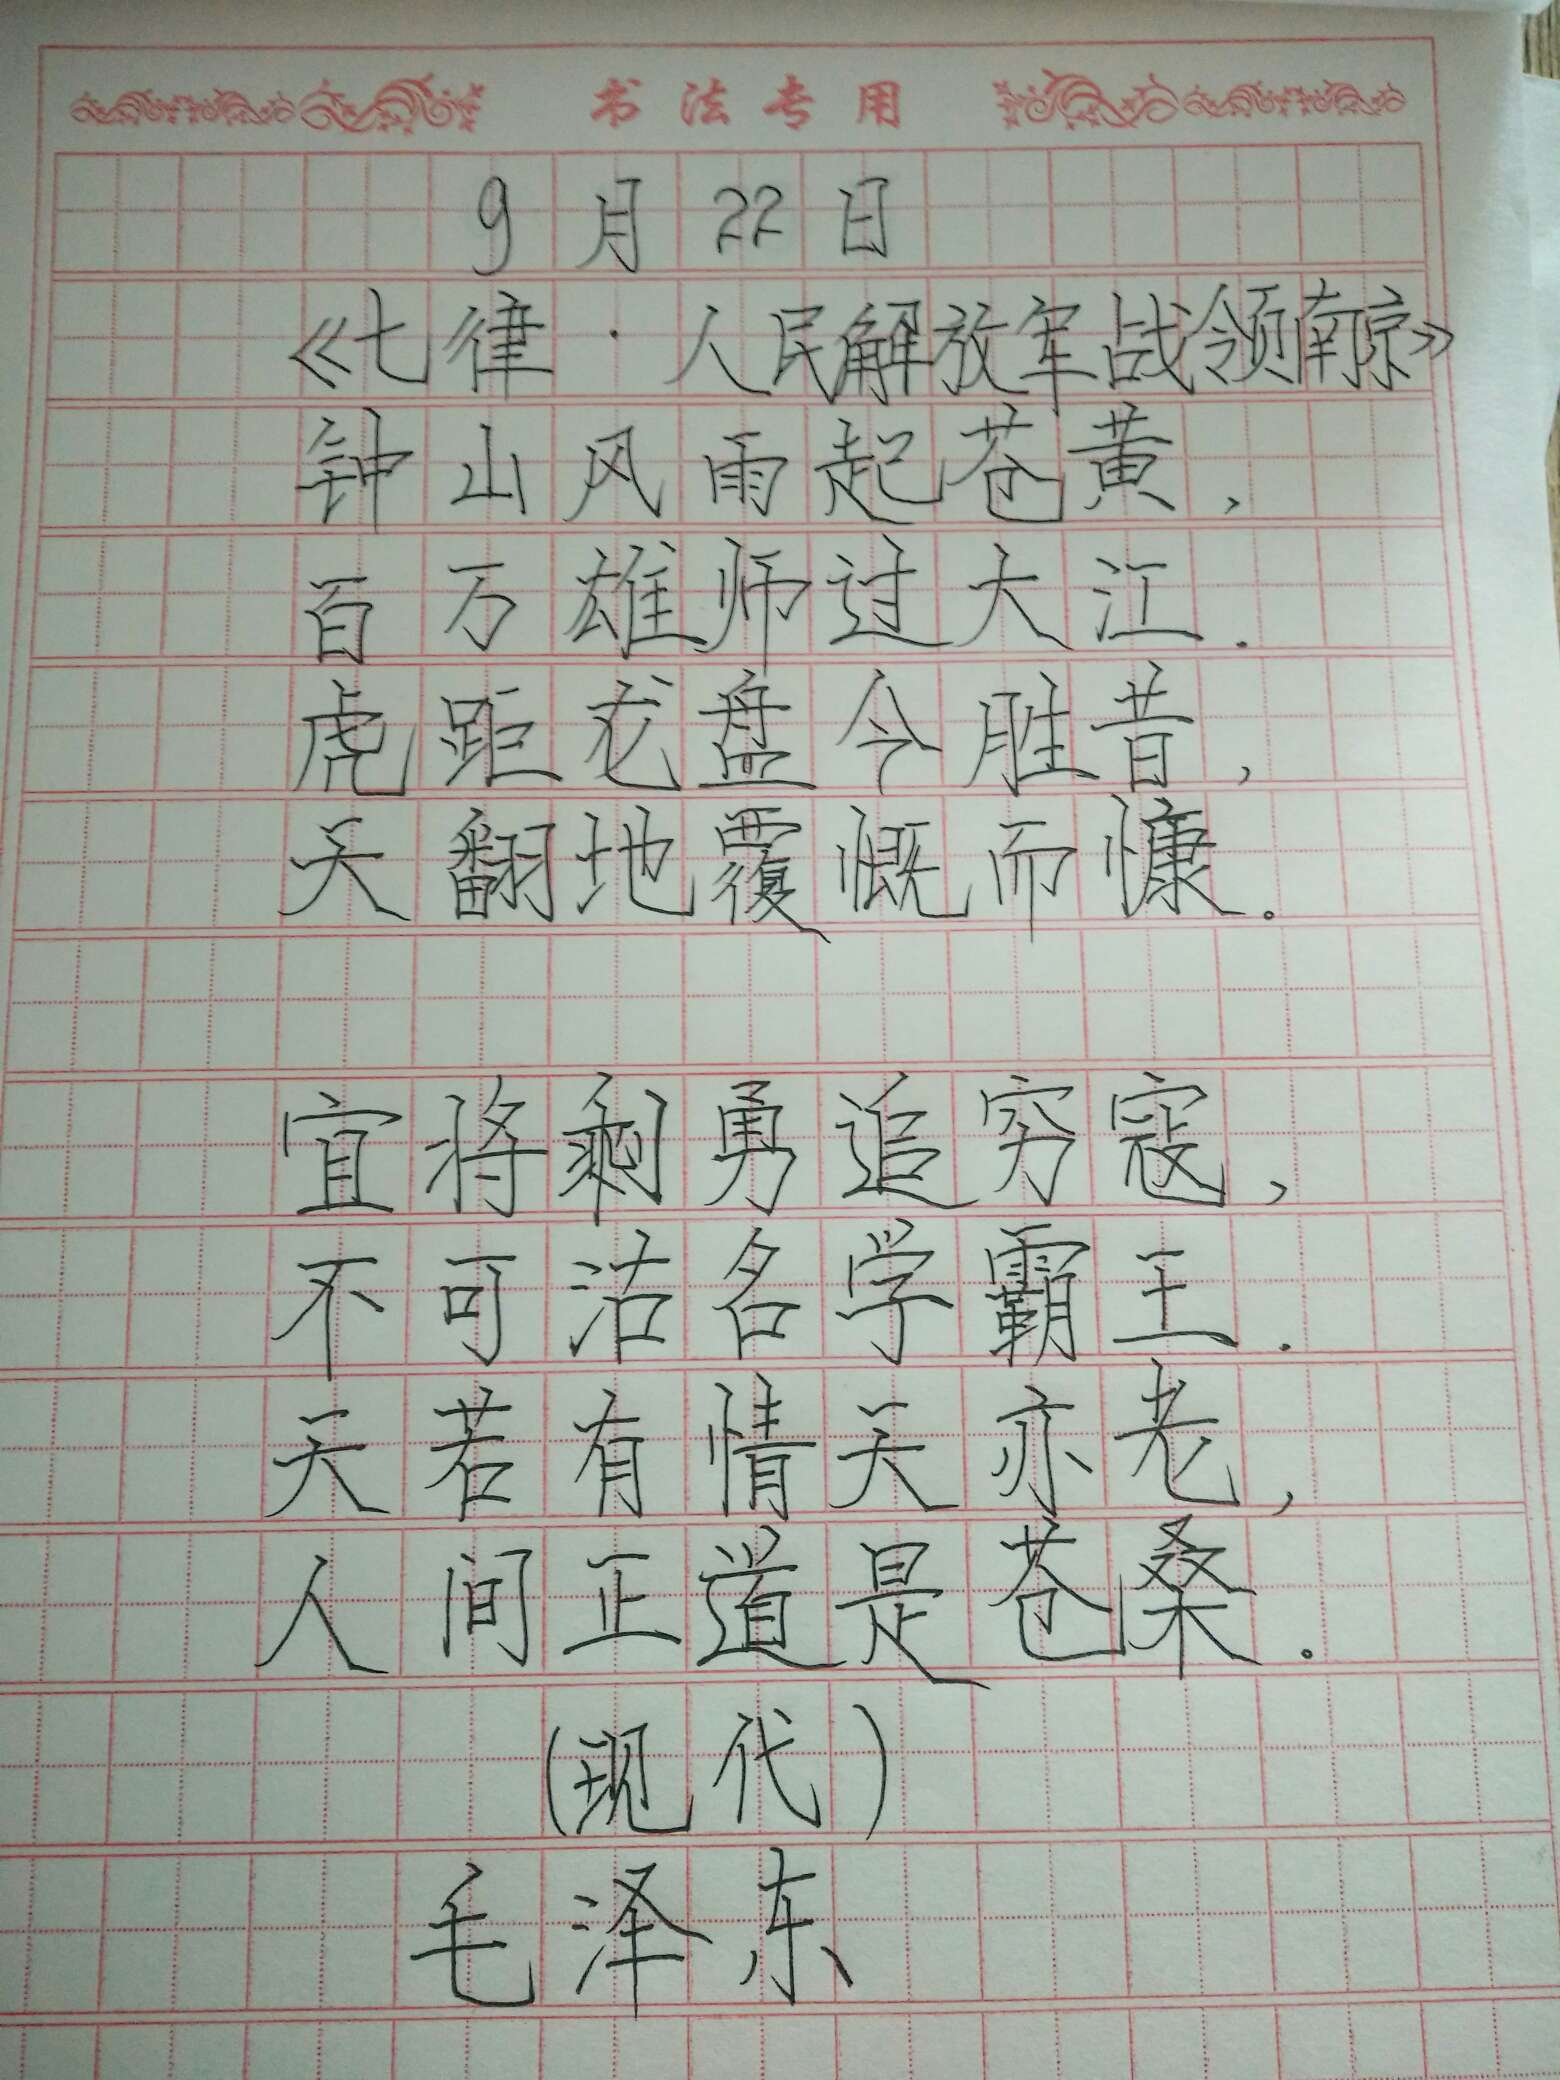 书法专用
9月22日
《七律·人民解放军战领南京》
钟山风雨起苍黄,
百万雄师过大江.
虎距龙盘今胜昔,
天翻地覆慨而慷。
宜将剩勇追穷寇,
不可沽名学霸王.
天若有情天亦老,
人间正道是苍桑.
(现代)
毛泽东